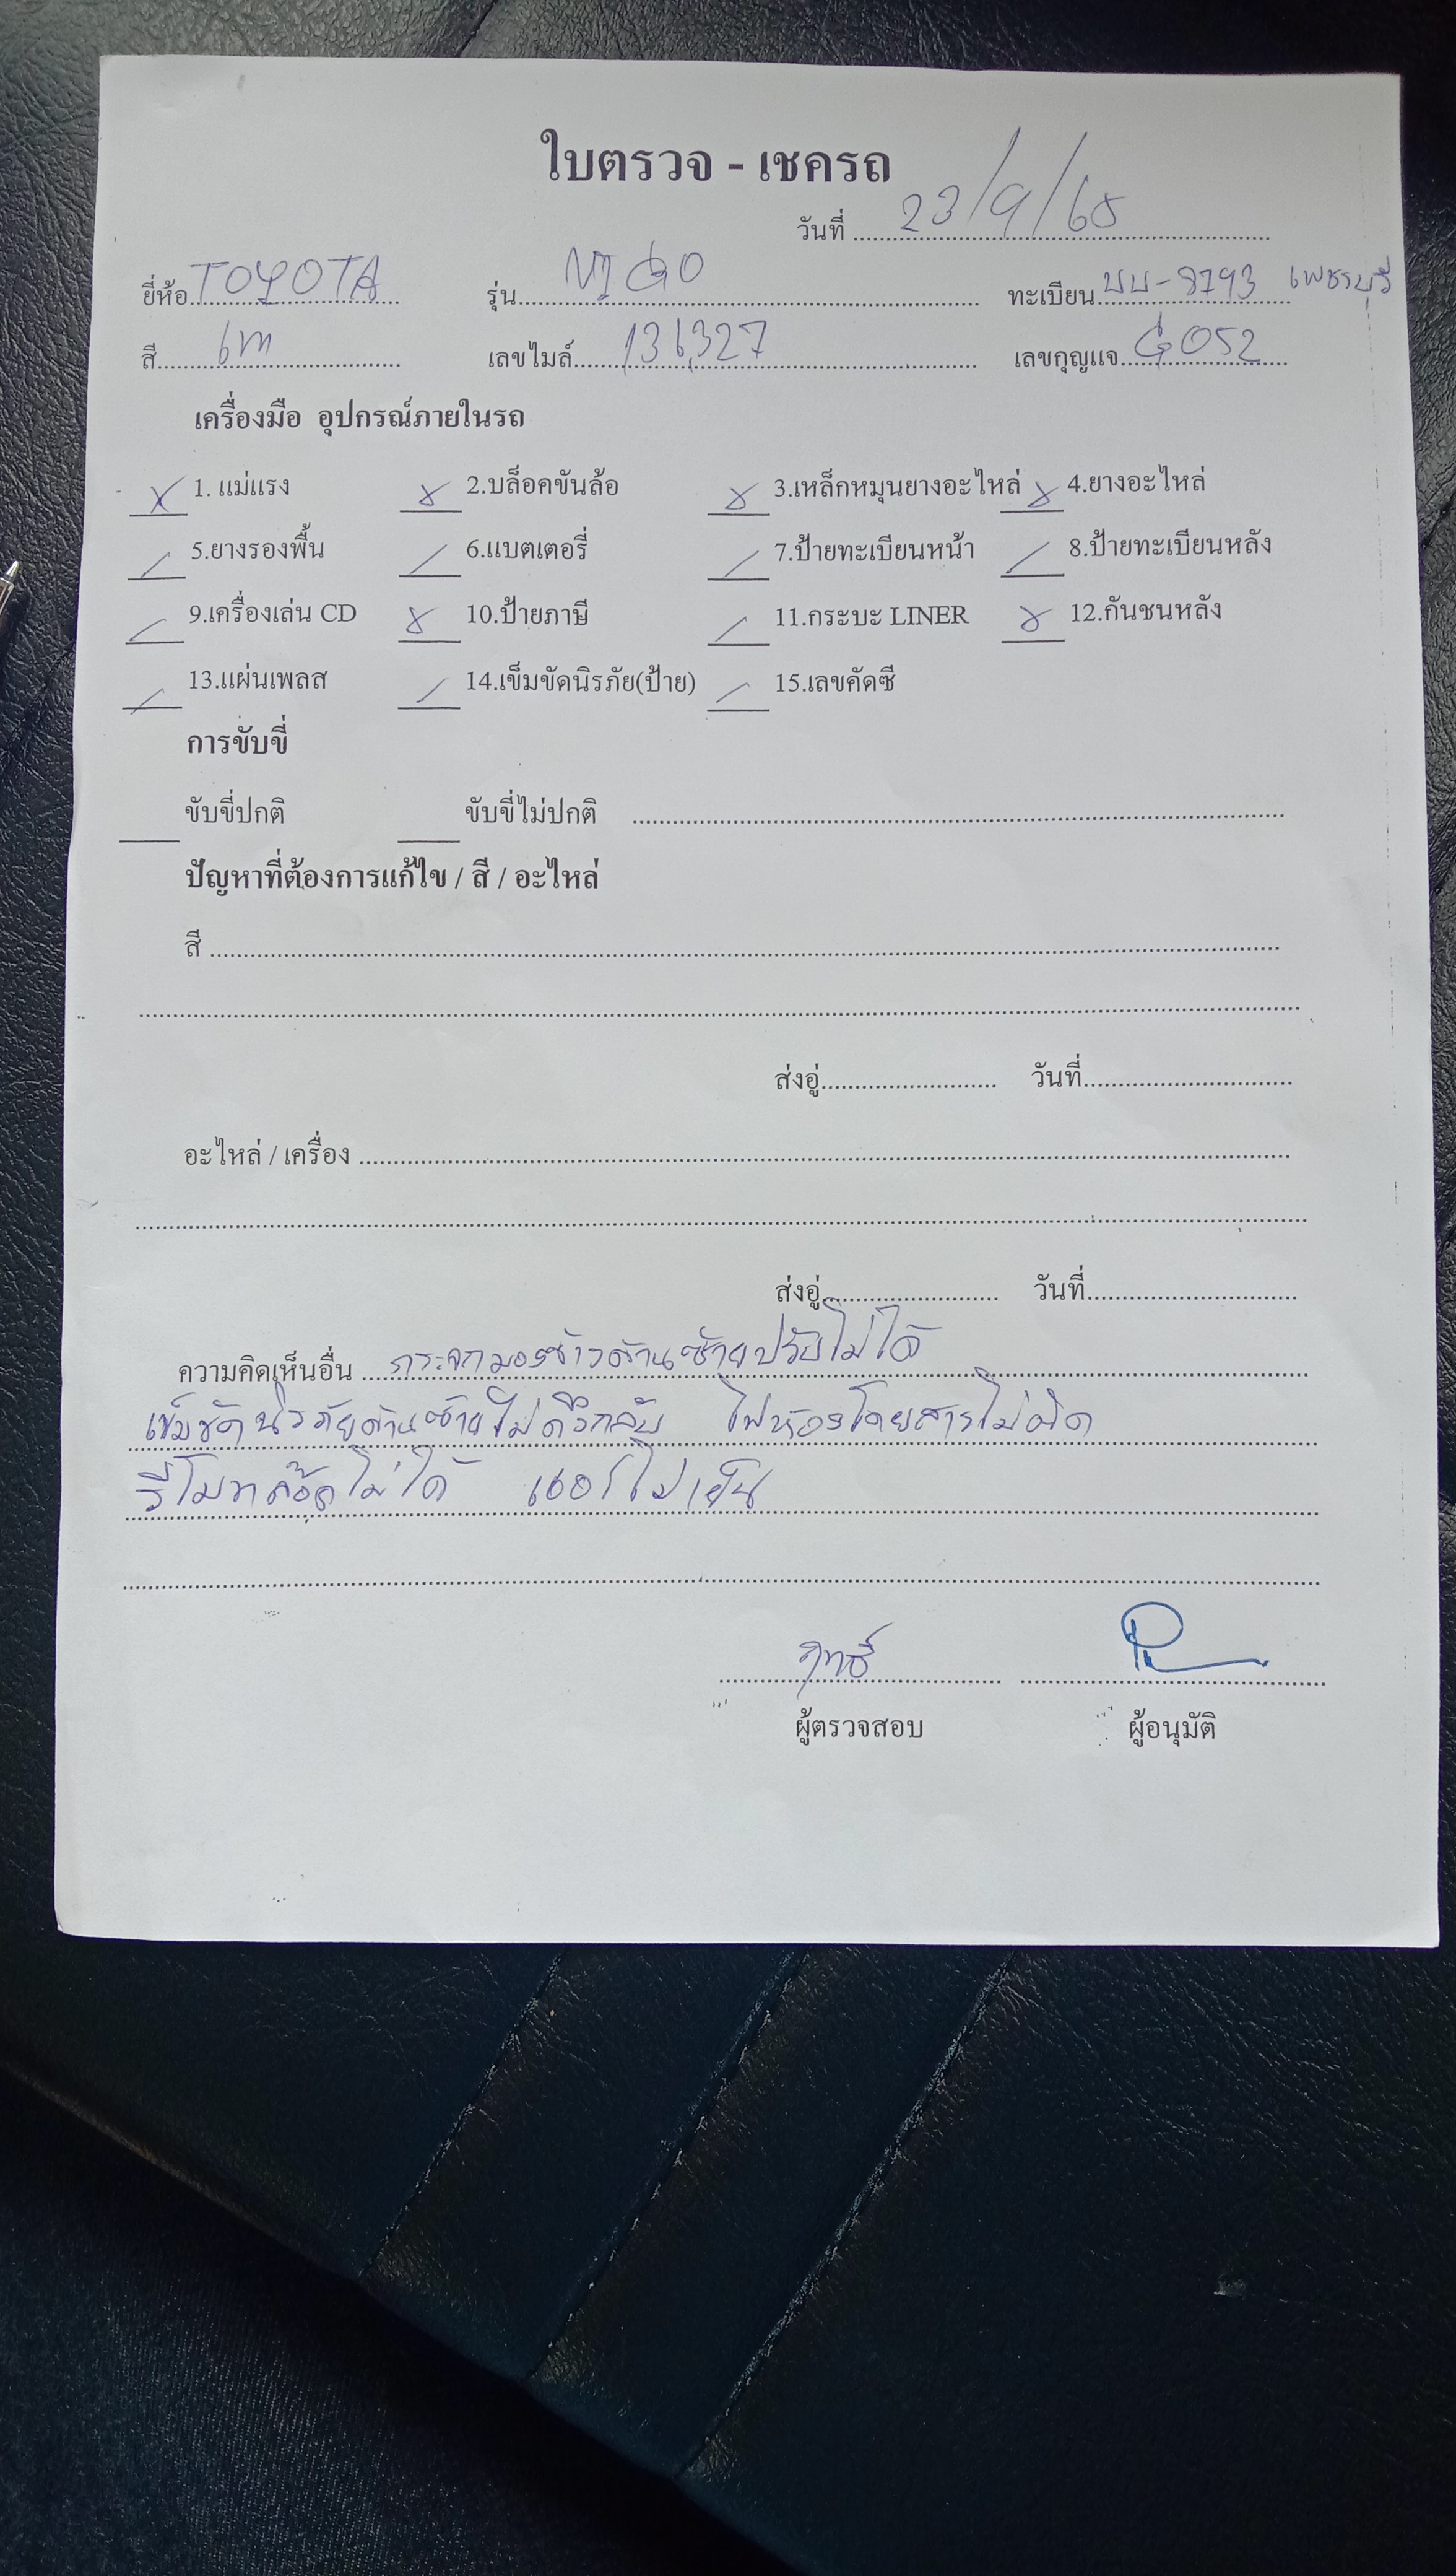 ใบตรวจ - เชครถ
วันที่ 23/9/68
ยี่ห้อ TOYOTA รุ่น VIGO ทะเบียน บบ-8793 เพชรบุรี
สี เทา เลขไมล์ 136,327 เลขกุญแจ G052
เครื่องมือ อุปกรณ์ภายในรถ
X 1. แม่แรง X 2.บล็อคขันล้อ X 3.เหล็กหมุนยางอะไหล่ X 4.ยางอะไหล่
/ 5.ยางรองพื้น / 6.แบตเตอรี่ / 7.ป้ายทะเบียนหน้า / 8.ป้ายทะเบียนหลัง
/ 9.เครื่องเล่น CD X 10.ป้ายภาษี / 11.กระบะ LINER X 12.กันชนหลัง
/ 13.แผ่นเพลส / 14.เข็มขัดนิรภัย(ป้าย) / 15.เลขคัดซี
การขับขี่
ขับขี่ปกติ ขับขี่ไม่ปกติ
ปัญหาที่ต้องการแก้ไข / สี / อะไหล่
สี
ส่งอู่ วันที่
อะไหล่ / เครื่อง
ส่งอู่ วันที่
ความคิดเห็นอื่น กระจกมองข้างด้านซ้ายปรับไม่ได้
เข็มขัดนิรภัยด้านซ้ายไม่ดึงกลับ ไฟห้องโดยสารไม่ติด
รีโมทล็อคไม่ได้ แอร์ไม่เย็น
ฤทธิ์
ผู้ตรวจสอบ ผู้อนุมัติ